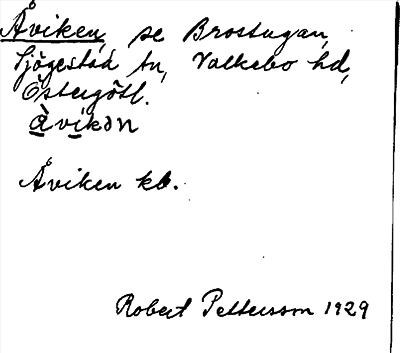 Åviken, se Brostugan,
Sjögestad sn, Valkebo hd,
Östergötl.
àvikən
Åviken kb.
Robert Pettersson 1929